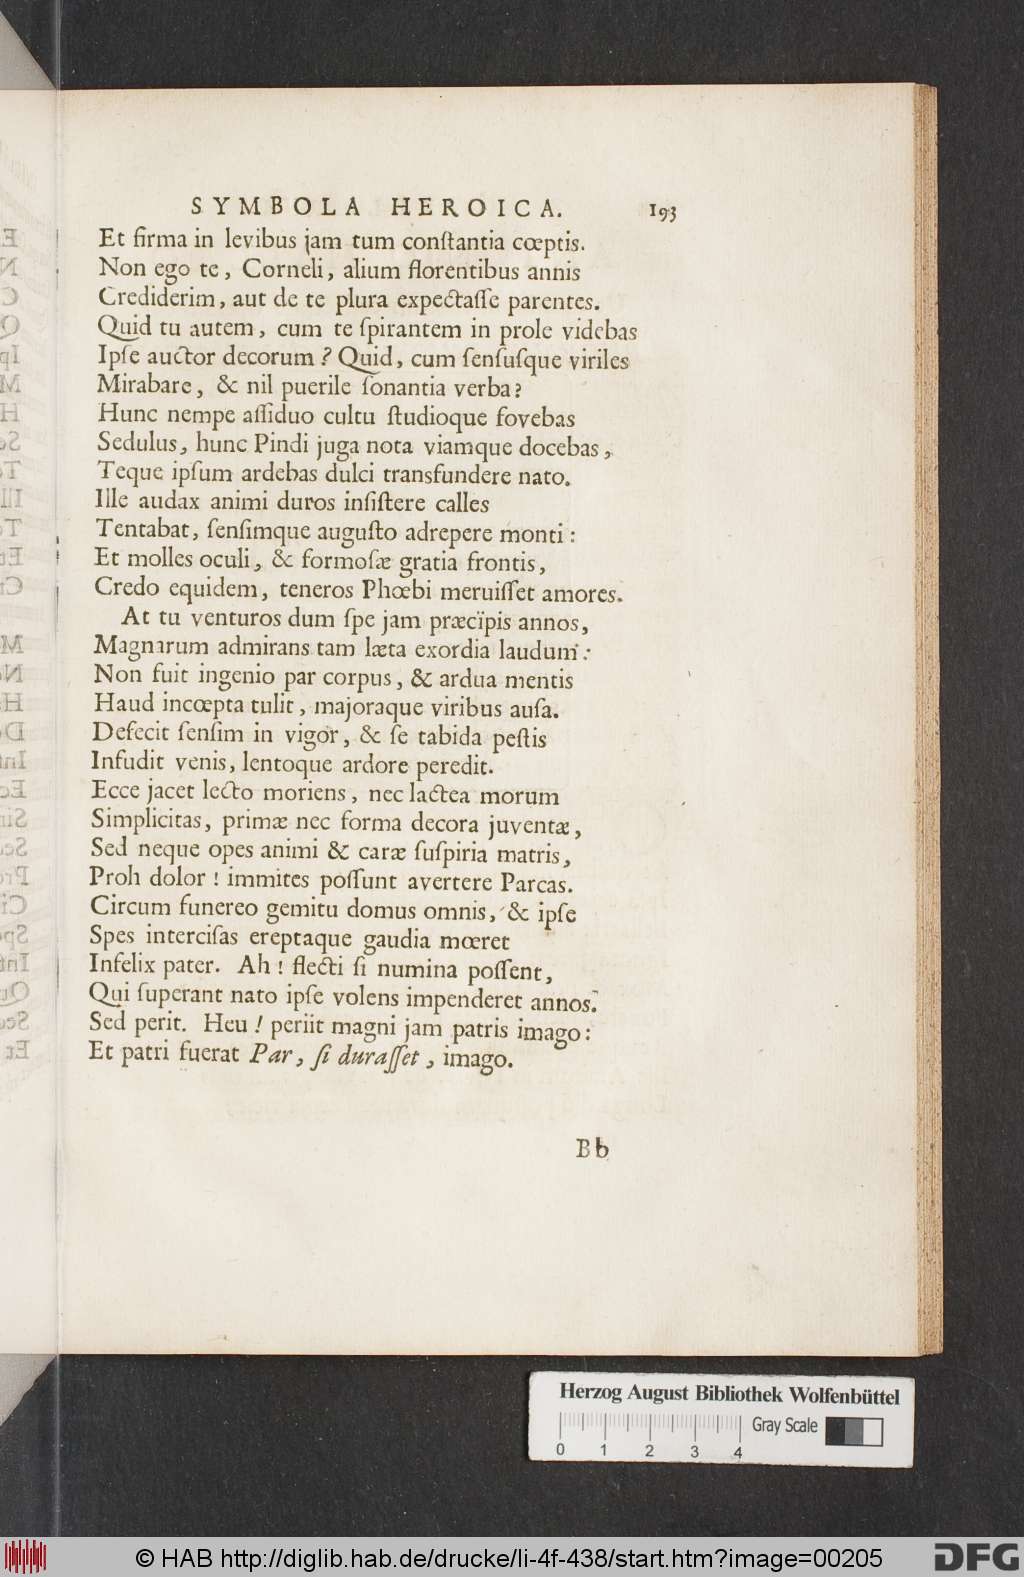 SYMBOLA HEROICA. 193
Et firma in levibus jam tum conſtantia cœptis.
Non ego te, Corneli, alium florentibus annis
Crediderim, aut de te plura expectaſſe parentes.
Quid tu autem, cum te ſpirantem in prole videbas
Ipſe auctor decorum? Quid, cum ſenſuſque viriles
Mirabare, & nil puerile ſonantia verba?
Hunc nempe aſſiduo cultu ſtudioque fovebas
Sedulus, hunc Pindi juga nota viamque docebas,
Teque ipſum ardebas dulci transfundere nato.
Ille audax animi duros inſiſtere calles
Tentabat, ſenſimque auguſto adrepere monti:
Et molles oculi, & formoſæ gratia frontis,
Credo equidem, teneros Phœbi meruiſſet amores.
At tu venturos dum ſpe jam præcipis annos,
Magnarum admirans tam læta exordia laudum:
Non fuit ingenio par corpus, & ardua mentis
Haud incœpta tulit, majoraque viribus auſa.
Defecit ſenſim in vigor, & ſe tabida peſtis
Infudit venis, lentoque ardore peredit.
Ecce jacet lecto moriens, nec lactea morum
Simplicitas, primæ nec forma decora juventæ,
Sed neque opes animi & caræ ſuſpiria matris,
Proh dolor! immites poſſunt avertere Parcas.
Circum funereo gemitu domus omnis, & ipſe
Spes interciſas ereptaque gaudia mœret
Infelix pater. Ah! flecti ſi numina poſſent,
Qui ſuperant nato ipſe volens impenderet annos.
Sed perit. Heu! periit magni jam patris imago:
Et patri fuerat Par, ſi duraſſet, imago.
Bb
Herzog August Bibliothek Wolfenbüttel
0 1 2 3 4 Gray Scale
© HAB http://diglib.hab.de/drucke/li-4f-438/start.htm?image=00205
DFG